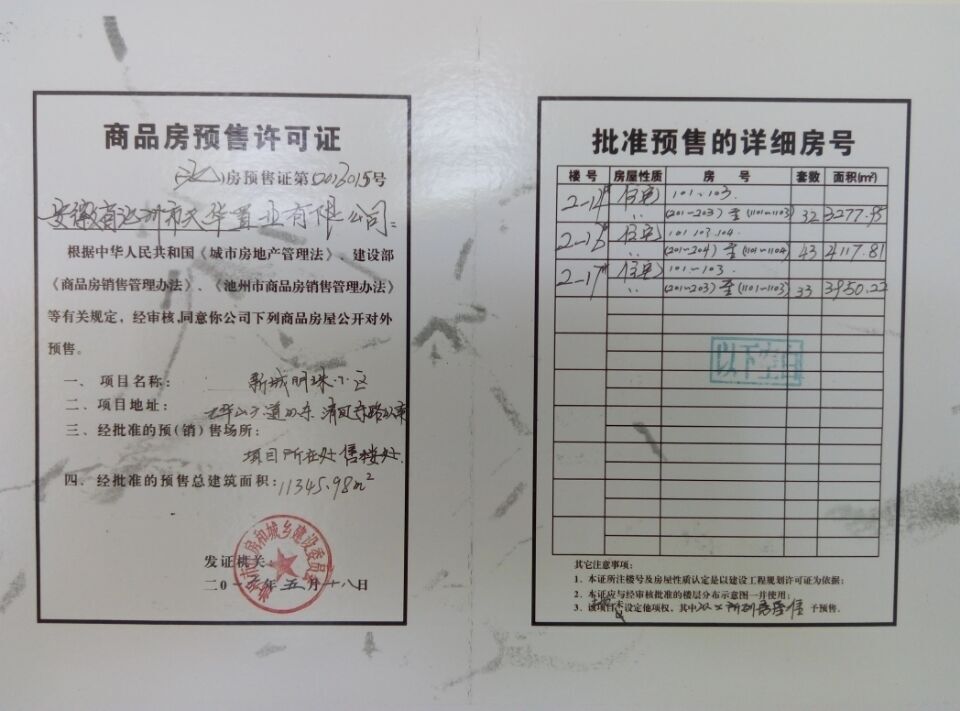 商品房预售许可证
房预售证第2013015号
安徽省池州市天华置业有限公司：
根据中华人民共和国《城市房地产管理法》、建设部
《商品房销售管理办法》、《池州市商品房销售管理办法》
等有关规定，经审核，同意你公司下列商品房屋公开对外
预售。
一、项目名称： 新城明珠小区
二、项目地址： 大道以东 清风东路以南
三、经批准的预（销）售场所：
项目所在处售楼处
四、经批准的预售总建筑面积：11345.98m²
发证机关
二0一 年五月十八日
批准预售的详细房号
楼号 房屋性质 房号 套数 面积(m²)
2-12# 住宅 101~103.
〃 (201~203)至(1101~1103) 32 3277.95
2-13# 住宅 101 103.104.
〃 (201~204)至(1101~1104) 43 4117.81
2-17# 住宅 101~103.
〃 (201~203)至(1101~1103) 33 3950.22
以下空白
其它注意事项：
1、本证所注楼号及房屋性质认定是以建设工程规划许可证为依据；
2、本证应与经审核批准的楼层分布示意图一并使用；
3、该项目 设定他项权，其中以上所列房屋准予预售。